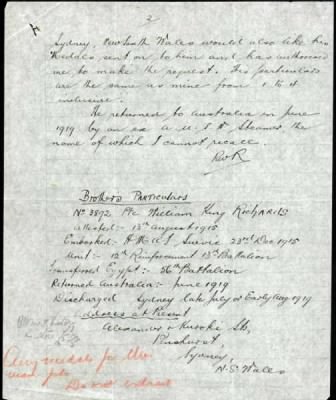 2
Sydney, New South Wales would also like his
Medals sent on to him and has authorised
me to make the request. His particulars
are the same as mine from 1 to 4
inclusive.
He returned to Australia in June
1919 by an ex A.U.S.N. Steamer the
name of which I cannot recall.
RWR
Brothers Particulars
No 3892 Pte William King RICHARDS
Attested:- 13th August 1915
Embarked:- H.M.A.S. Suevic 23rd Dec 1915
Unit:- 12th Reinforcement 13th Battalion
Transferred Egypt:- 36th Battalion
Returned Australia:- June 1919
Discharged Sydney late July or Early Aug 1919
Address at Present
Alexander & Sts,
Penshurst,
Sydney,
N.S. Wales
Any medals for this
man pls
Do not extract